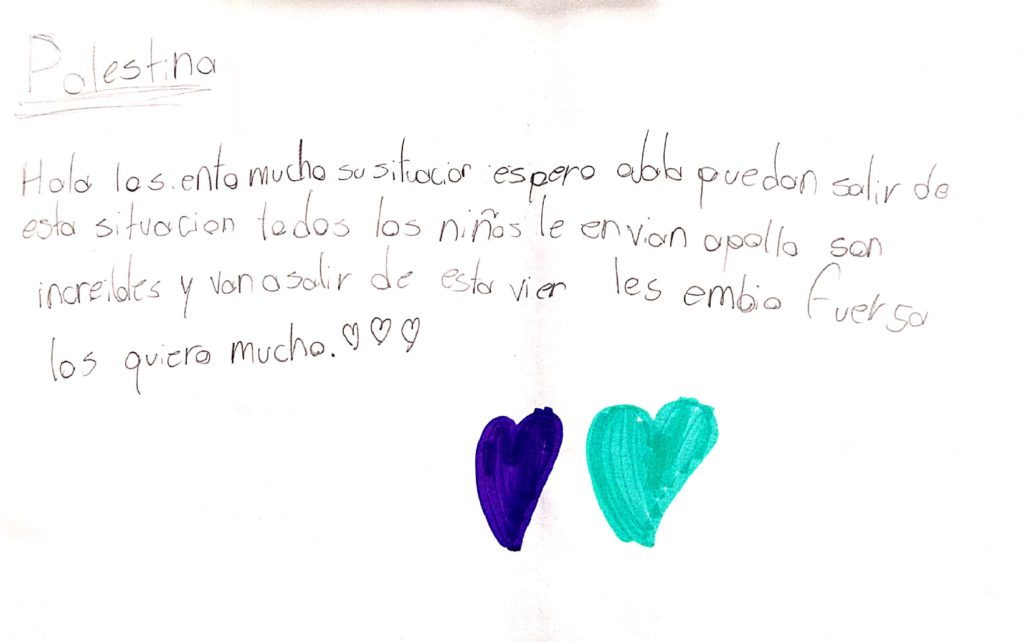 Palestina
Hola los.ento mucho su situacion espero puedan salir de
esta situacion todos los niños le envian apollo son
increibles y van a salir de esta vien les embio fuersa
los quiero mucho.♡♡♡